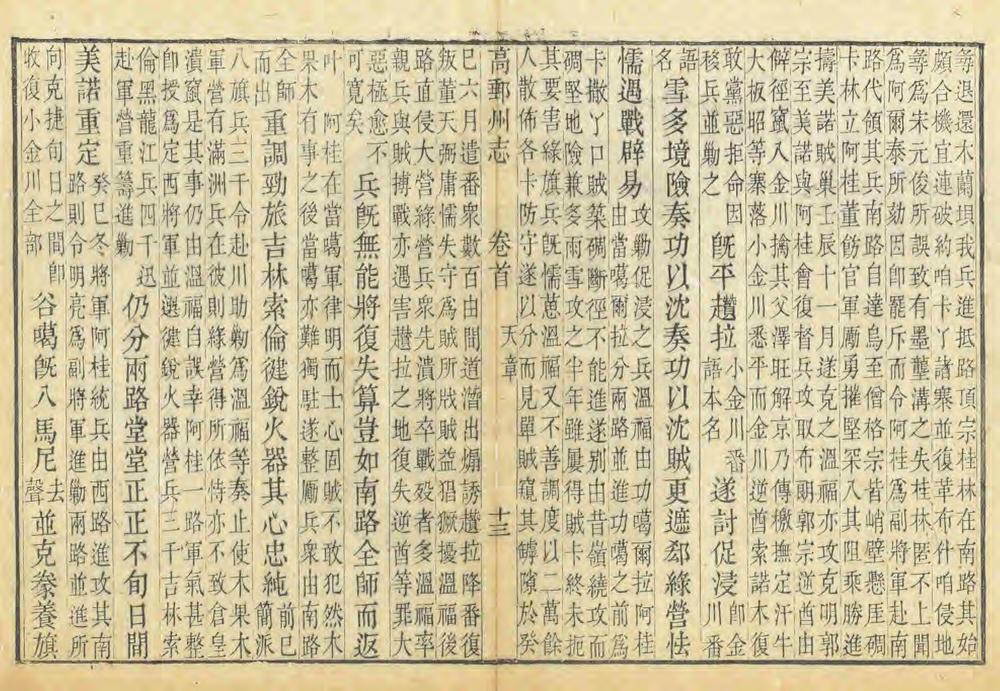 㝷退還木蘭垻我兵進抵路頂宗桂林在南路其始
頗合機宜連破約咱卡丫諸寨並復革布什咱侵地
㝷為宋元俊所誤致有墨壟溝之失桂林匿不上聞
為阿爾泰所劾因卽罷斥而令阿桂為副將軍赴南
路代領其兵南路自達烏至僧格宗皆峭壁懸厓碉
卡林立阿桂董飭官軍厲勇摧堅罙入其阻乘勝進
擣美諾賊巢壬辰十一月遂克之溫福亦攻克明郭
宗至美諾與阿桂會復督兵攻取布朗郭宗逆酋由
僻徑竄入金川擒其父澤旺解京乃傳檄撫定汗牛
大板昭等寨落小金川悉平而金川逆酋索諾木復
敢黨惡拒命因
移兵並勦之
旣平趲拉
小金川番
語本名
遂討促浸
卽金
川番
語
名
雪多境險奏功以沈奏功以沈賊更遮郄綠營怯
懦遇戰辟易
攻勦促浸之兵溫福由功噶爾拉阿桂
由當噶爾拉分兩路並進功噶之前為
卡撒丫口賊築碉斷徑不能進遂别由昔嶺繞攻而
碉堅地險兼多雨雪攻之半年雖屢得賊卡終未扼
其要害綠旗兵旣懦葸溫福又不善調度以二萬餘
人散佈各卡防守遂以分而見單賊窺其罅隙於癸
高郵州志 卷首 天章 十三
巳六月遣番衆數百由間道潛出煽誘趲拉降番復
叛董天弼庸懦失守為賊所戕賊益猖獗擾溫福後
路直侵大營綠營兵衆先潰將卒戰歿者多溫福率
親兵與賊搏戰亦遇害趲拉之地復失逆酋等罪大
惡極愈不
可寬矣
兵旣無能將復失算豈如南路全師而返
叶 阿桂在當噶軍律明而士心固賊不敢犯然木
果木有事之後當噶亦難獨駐遂整厲兵衆由南路
全師
而出
重調勁旅吉林索倫健銳火器其心忠純
前已
簡派
八旗兵三千令赴川助勦為溫福等奏止使木果木
軍營有滿洲兵在彼則綠營得所依恃亦不致倉皇
潰竄是其事仍由溫福自誤幸阿桂一路軍氣甚整
卽授為定西將軍並選健銳火器營兵三千吉林索
倫黑龍江兵四千迅
赴軍營重籌進勦
仍分兩路堂堂正正不旬日間
美諾重定
癸巳冬將軍阿桂統兵由西路進攻其南
路則令明亮為副將軍進勦兩路並進所
向克捷旬日之間卽
收復小金川全部
谷噶旣入馬尼
去
聲
並克豢養旗